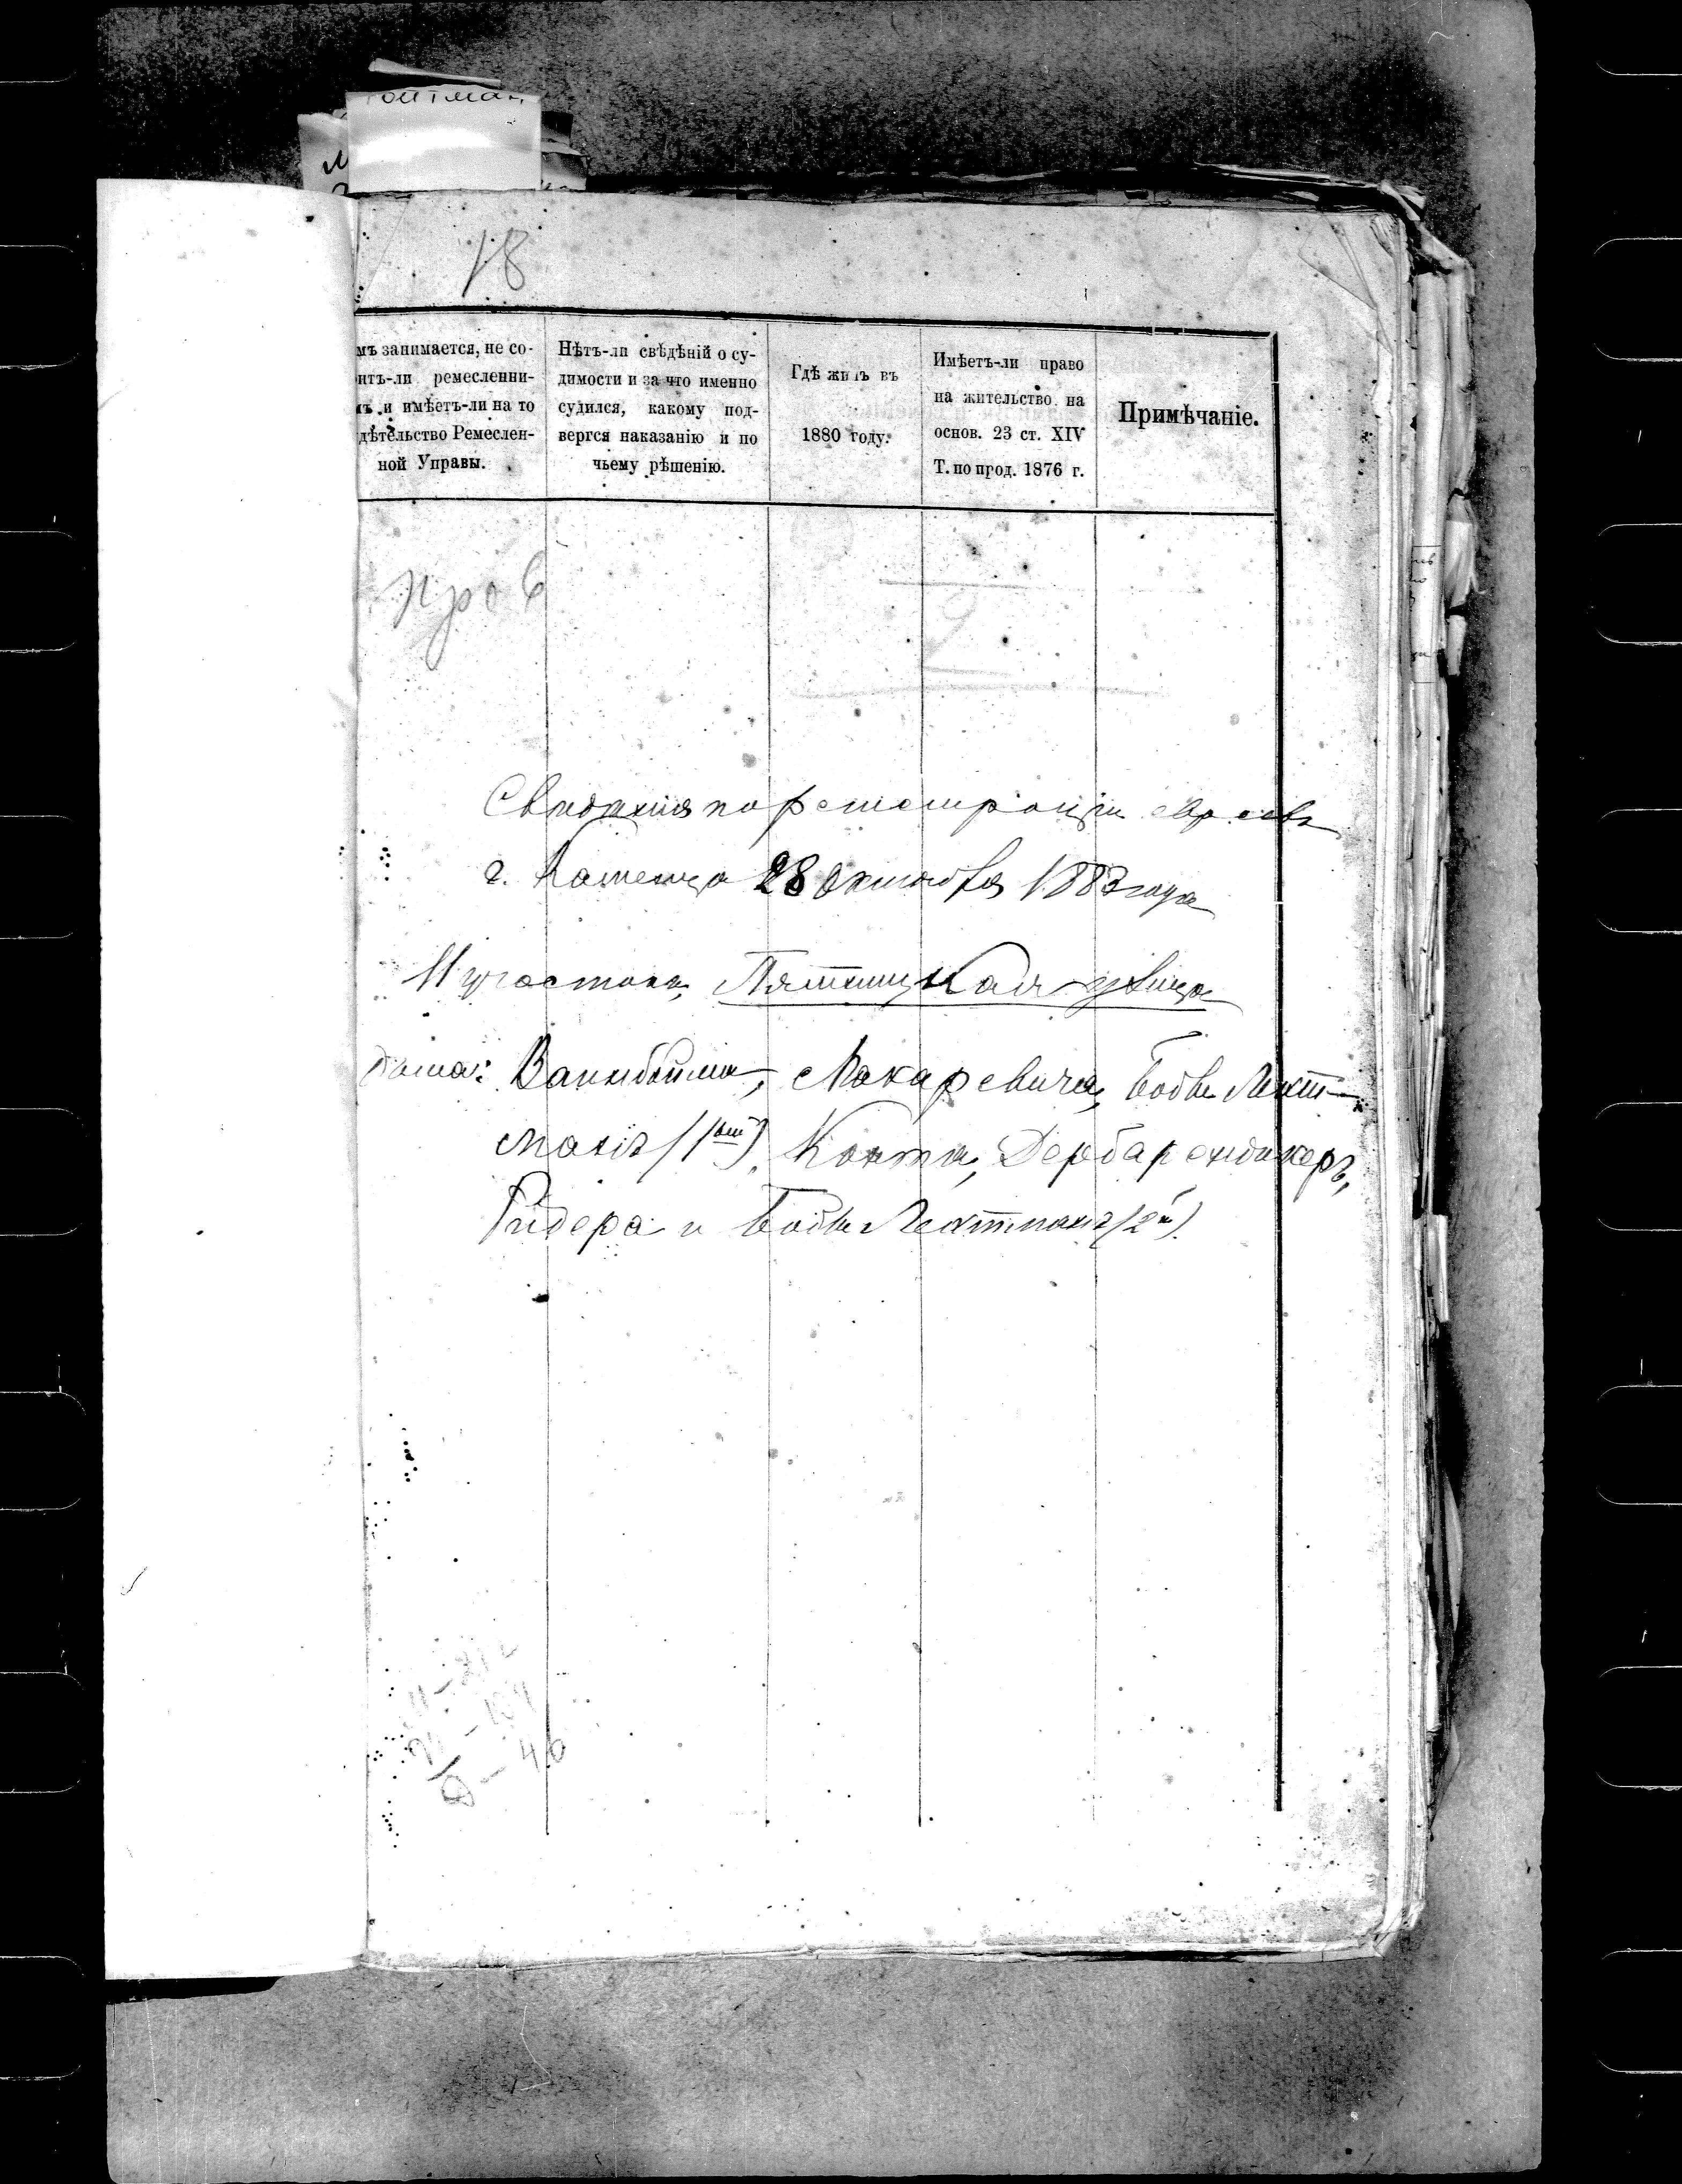 18
мъ занимается, не со-
итъ-ли ремесленни-
мъ и имѣетъ-ли на то
дѣтельство Ремеслен-
ной Управы.
Нѣтъ-ли свѣдѣній о су-
димости и за что именно
судился, какому под-
вергся наказанію и по
чьему рѣшенію.
Гдѣ жилъ въ
1880 году.
Имѣетъ-ли право
на жительство на
основ. 23 ст. XIV
Т. по прод. 1876 г.
Примѣчаніе.
пров
Свѣдѣнія по регистраціи евреевъ
г. Каменца 28 Октября 1883 года
II участока, Пятницкая улица
дома: Макаревича,
(1ый) Дербарендикеръ,
Ридера и (2й).
40